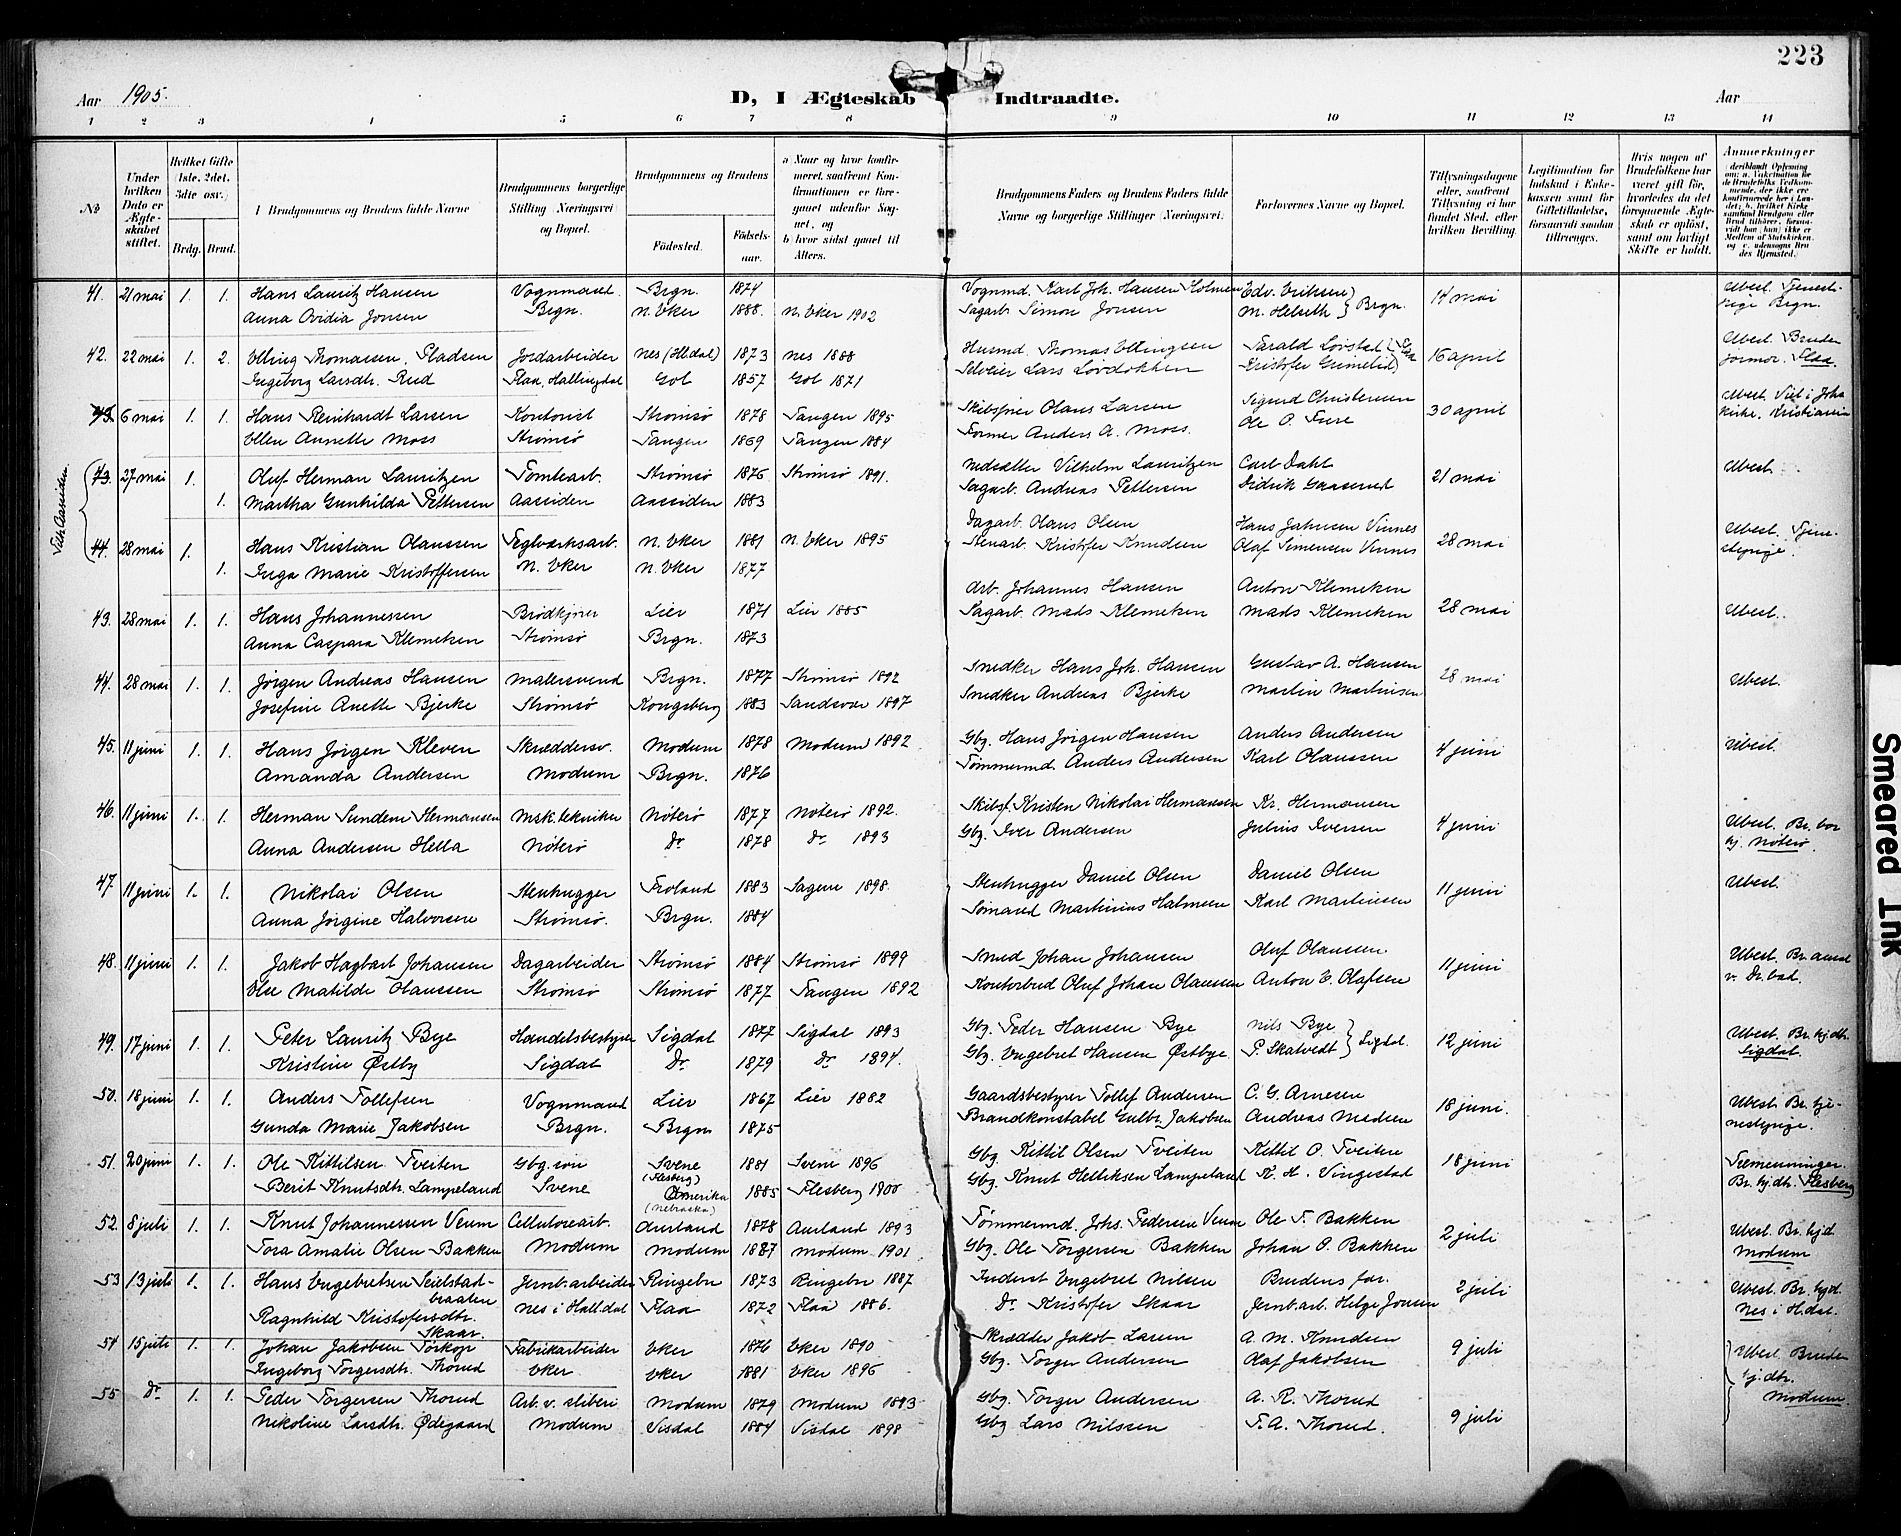 223
Aar 1905.
D, I Ægteskab Indtraadte.
Aar
1 2 3 4 5 6 7 8 9 10 11 12 13 14
№
Under hvilken Dato er Ægteskabet stiftet.
Hvilket Gifte (1ste, 2det, 3die osv.)
Brdg. Brud.
Brudgommens og Brudens fulde Navne
Brudgommens borgerlige Stilling (Næringsvei) og Bopæl.
Brudgommens og Brudens
Fødested. Fødselsaar.
a Naar og hvor konfirmeret, saafremt Konfirmationen er foregaaet udenfor Sognet, og
b hvor sidst gaaet til Alters.
Brudgommens Faders og Brudens Faders fulde Navne og borgerlige Stillinger (Næringsvei.
Forlovernes Navne og Bopæl.
Tillysningsdagene eller, saafremt Tillysning ei har fundet Sted, efter hvilken Bevilling.
Legitimation for Indskud i Enkekassen samt for Giftetilladelse, forsaavidt saadan tiltrænges.
Hvis nogen af Brudefolkene har været gift før, hvorledes da det foregaaende Ægteskab er opløst, samt om lovligt Skifte er holdt.
Anmerkninger
41. 21 mai 1. 1. Hans Lauritz Hansen Vognmand Brgn. 1874 Vognmd. Karl Joh. Hansen Holmen Edv. Eriksen 14 mai Ubest. Tjenest-
Anna Ovidia Jonsen Brgn. N. Eker 1888. N. Eker 1902 Sagarb. Simon Jonsen M. Helseth } Brgn. pige Brgn.
42. 22 mai 1. 2. Elling Thomassen Pladsen Jordarbeider Nes (Halldal) 1873 Nes 1888 Husmd. Thomas Ellingsen Tarald Lovstad 16 april Ubest. Bruden
Ingeborg Larsdtr. Rud Flaa, Hallingdal Gol 1857 Gol 1871 Selveier Lars Lovdokken Kristofer Grimelid Flaa
43. 6 mai 1. 1. Hans Reinhardt Larsen Kontorist Strømsø 1878 Tangen 1895 Skibsfører Olaus Larsen Sigurd Christensen 30 april Ubest. Viet i Johs
Ellen Annette Moss Strømsø Tangen 1869 Tangen 1884 Former Anders A. Moss. Ole O. Fure kirke, Kristiania
43. 27 mai 1. Oluf Herman Lauritzen Tomtearb. Strømsø 1876 Strømsø 1891. Nedsætter Vilhelm Lauritzen Carl Dahl 21 mai Ubest.
1. Martha Gunhilda Pettersen Aassiden Aassiden 1883 Sagarb. Andreas Pettersen Didrik Gaaserud
44. 28 mai 1. Hans Kristian Olaussen Teglverksarb. N. Eker 1881 N. Eker 1895 Dagarb. Olaus Olsen Hans Jahnsen Vinnes 28 mai Ubest. Tjene-
1. Inga Marie Kristoffersen N. Eker N. Eker 1877 Stenarb. Kristofer Knudsen Olaf Simensen Vinnes stepige.
43. 28 mai 1. 1. Hans Johannessen Brødkjører Lier 1871 Lier 1885 Arb. Johannes Hansen Anton Klemeken 28 mai Ubest.
Anna Caspara Klemeken Strømsø Brgn. 1873 Sagarb. Mads Klemeken Mads Klemeken
44. 28 mai 1. 1. Jørgen Andreas Hansen Malersvend Brgn. 1877 Strømsø 1892 Snedker Hans Joh. Hansen Gustav A. Hansen 28 mai Ubest.
Josefine Anette Bjerke Strømsø Kongsberg 1883 Sandsvær 1897 Snedker Andreas Bjerke Martin Martinsen
45. 11 juni 1. 1. Hans Jørgen Kleven Skræddersv. Modum 1878 Modum 1892 Gbg. Hans Jørgen Hansen Anders Andersen 4 juni Ubest.
Amanda Andersen Modum Brgn. 1876 Tømmermd. Anders Andersen Karl Olaussen
46. 11 juni 1. 1. Herman Sundene Hermansen Mek. tekniker Nøterø 1877 Nøterø 1892. Skibsf. Kristen Nikolai Hermansen Kr. Hermansen 4 juni Ubest. Br. bor
Anna Andersen Hella Nøterø Do 1878 Do 1893 Gbg. Iver Andersen Julius Iversen hj. Nøterø.
47. 11 juni 1. 1. Nikolai Olsen Stenhugger Froland 1883 Sagene 1898. Stenhugger Daniel Olsen Daniel Olsen 11 juni Ubest.
Anna Jørgine Halvorsen Strømsø. Brgn. 1884 Sømand Martinius Halvorsen Karl Martinsen
48. 11 juni 1. 1. Jakob Hagbart Johansen Dagarbeider Strømsø 1884 Strømsø 1899 Smed Johan Johansen Oluf Olaussen 11 juni Ubest. Br. ansat
Else Matilde Olaussen Strømsø Strømsø 1877 Tangen 1892 Kontorbud Oluf Johan Olaussen Anton E. Olafsen v. Dr. bad.
49. 17 juni 1. 1. Peter Lauritz Bye Handelsbestyrer Sigdal 1877 Sigdal 1893 Gbg. Peder Hansen Bye Nils Bye 12 juni Ubest. Br. hj. dtr.
Kristine Østby Sigdal Do 1879 Do 1894. Gbg. Engebret Hansen Østbye. P. Skatvedt } Sigdal. Sigdal.
50. 18 juni 1. 1. Anders Tollefsen Vognmand Lier 1867 Lier 1882 Gaardsbestyrer Tollef Andersen C. G. Arnesen 18 juni. Ubest. Br. tje-
Gunda Marie Jakobsen Brgn. Brgn 1875 Brandkonstabel Gulbr. Jakobsen Andreas Madsen nestepige.
51. 20 juni 1. 1. Ole Kittilsen Tveiten Gbg. søn Svene (Flesberg) 1881 Svene 1896 Gbg. Kittil Olsen Tveiten Kittil O. Tveiten 18 juni Tremenninger.
Berit Knutsdtr. Lampeland Svene Amerika (Nebraska) 1885 Flesberg 1900 Gbg. Knut Helliksen Lampeland K. H. Vingestad Br. hj. dtr. Flesberg
52. 8 juli 1. 1. Knut Johannessen Veum Cellulosearb. Aurland 1878 Aurland 1893 Tømmermd. Johs. Pedersen Veum Ole T. Bakken 2 juli Ubest. Br. hjd.
Tora Amalie Olsen Bakken Modum Modum 1887 Modum 1901. Gbg. Ole Torgersen Bakken Johan O. Bakken Modum
53 13 juli 1. 1. Hans Engebretsen Seielstad- Jernb. arbeider Ringebu 1873 Ringebu 1887 Inderst Engebret Nilsen Brudens far. 2 juli Ubest. Br. hjd.
braaten
Ragnhild Kristofersdtr. Nes i Hall.dal Flaa 1872 Flaa 1886. Do Kristofer Skaar Jernb. arb. Helge Jonsen Nes i H.dal.
Skaar.
54 15 juli 1. 1. Johan Jakobsen Torkop Fabrikarbeider Eker 1876 Eker 1890 Skrædder Jakob Larsen A. M. Knudsen 9 juli Ubest. Bruden
Ingeborg Torgersdtr. Thorud Eker Eker 1881 Eker 1896 Gbg. Torger Andersen Olaf Jakobsen hj. dtr.
55 Do 1. 1. Peder Torgersen Thorud Arb. v. sliberi Modum 1879 Modum 1893 Gbg. Torger Andersen A. R. Thorud 9 juli Modum.
Nikoline Larsdtr. Ødegaard Modum Visdal 1884 Visdal 1898 Gbg Lars Nilssen T. A. Thorud.
Smeared Ink